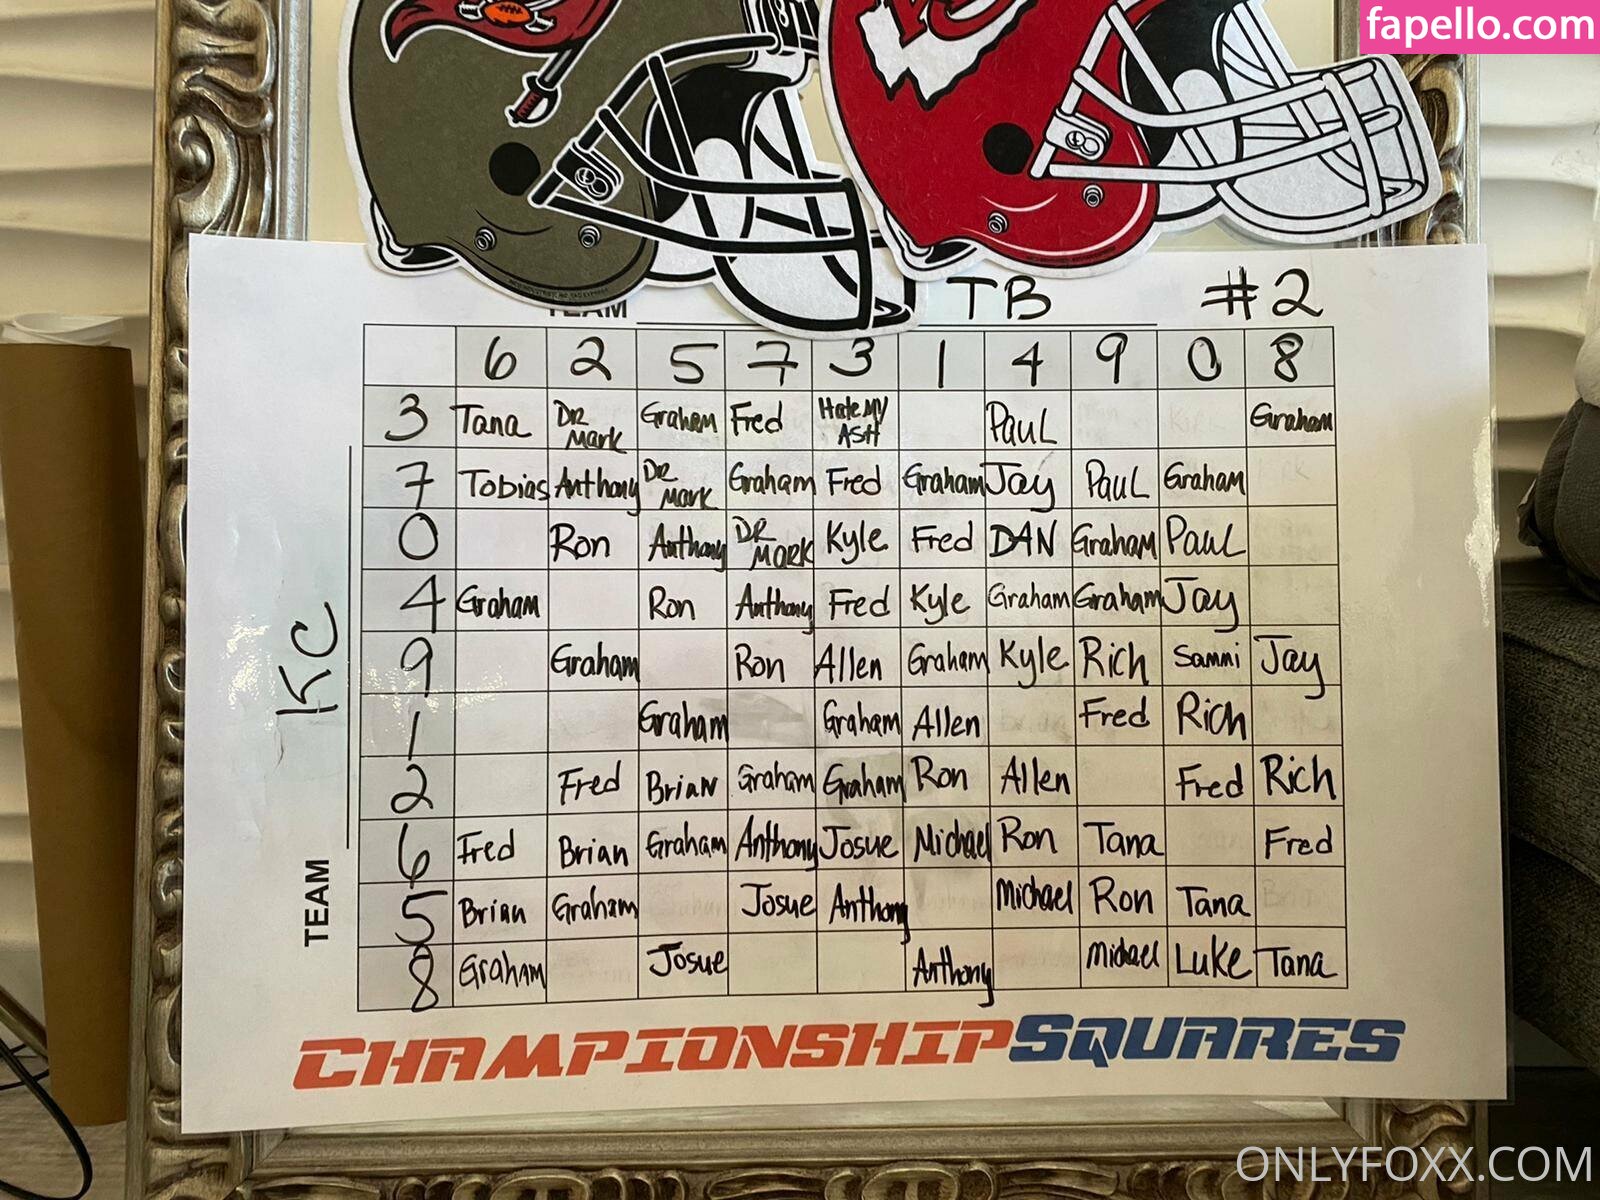 fapello.com
TEAM TB #2
6 2 5 7 3 1 4 9 0 8
3 Tana DR MARK Graham Fred Hate MY ASH Paul Graham
7 Tobias Anthony DR MARK Graham Fred Graham Jay Paul Graham
0 Ron Anthony DR MARK Kyle Fred DAN Graham Paul
4 Graham Ron Anthony Fred Kyle Graham Graham Jay
9 Graham Ron Allen Graham Kyle Rich Sammi Jay
1 Graham Graham Allen Fred Rich
2 Fred Brian Graham Graham Ron Allen Fred Rich
6 Fred Brian Graham Anthony Josue Michael Ron Tana Fred
5 Brian Graham Josue Anthony Michael Ron Tana
8 Graham Josue Anthony Michael Luke Tana
TEAM KC
CHAMPIONSHIPSQUARES
ONLYFOXX.COM